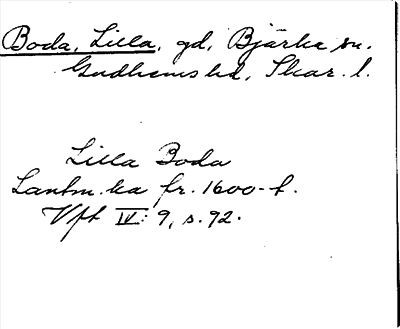 Boda, Lilla, gd, Bjärka sn.
Gudhems hd, Skar. l.
Lilla Boda
Lantm. ka fr. 1600-t.
Vft IV: 9, s. 92.